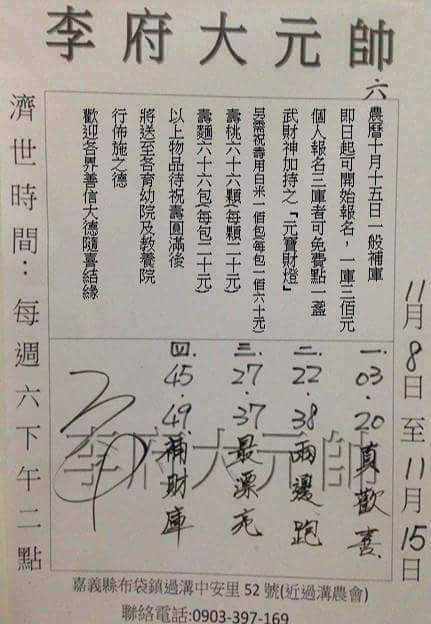 李府大元帥
六
濟世時間：每週六下午二點
農曆十月十五日一般補庫
即日起可開始報名，一庫三佰元
個人報名三庫者可免費點一盞
武財神加持之「元寶財燈」
另需祝壽用白米一佰包(每包一佰六十元)
壽桃六十六顆(每顆二十元)
壽麵六十六包(每包二十元)
以上物品待祝壽圓滿後
將送至各育幼院及教養院
行佈施之德
歡迎各界善信大德隨喜結緣
11月8日至11月15日
一. 03.20真歡喜
二. 22.38兩邊跑
三. 27.37最漂亮
四. 45.49補財庫
李府大元帥
嘉義縣布袋鎮過溝中安里52號(近過溝農會)
聯絡電話:0903-397-169